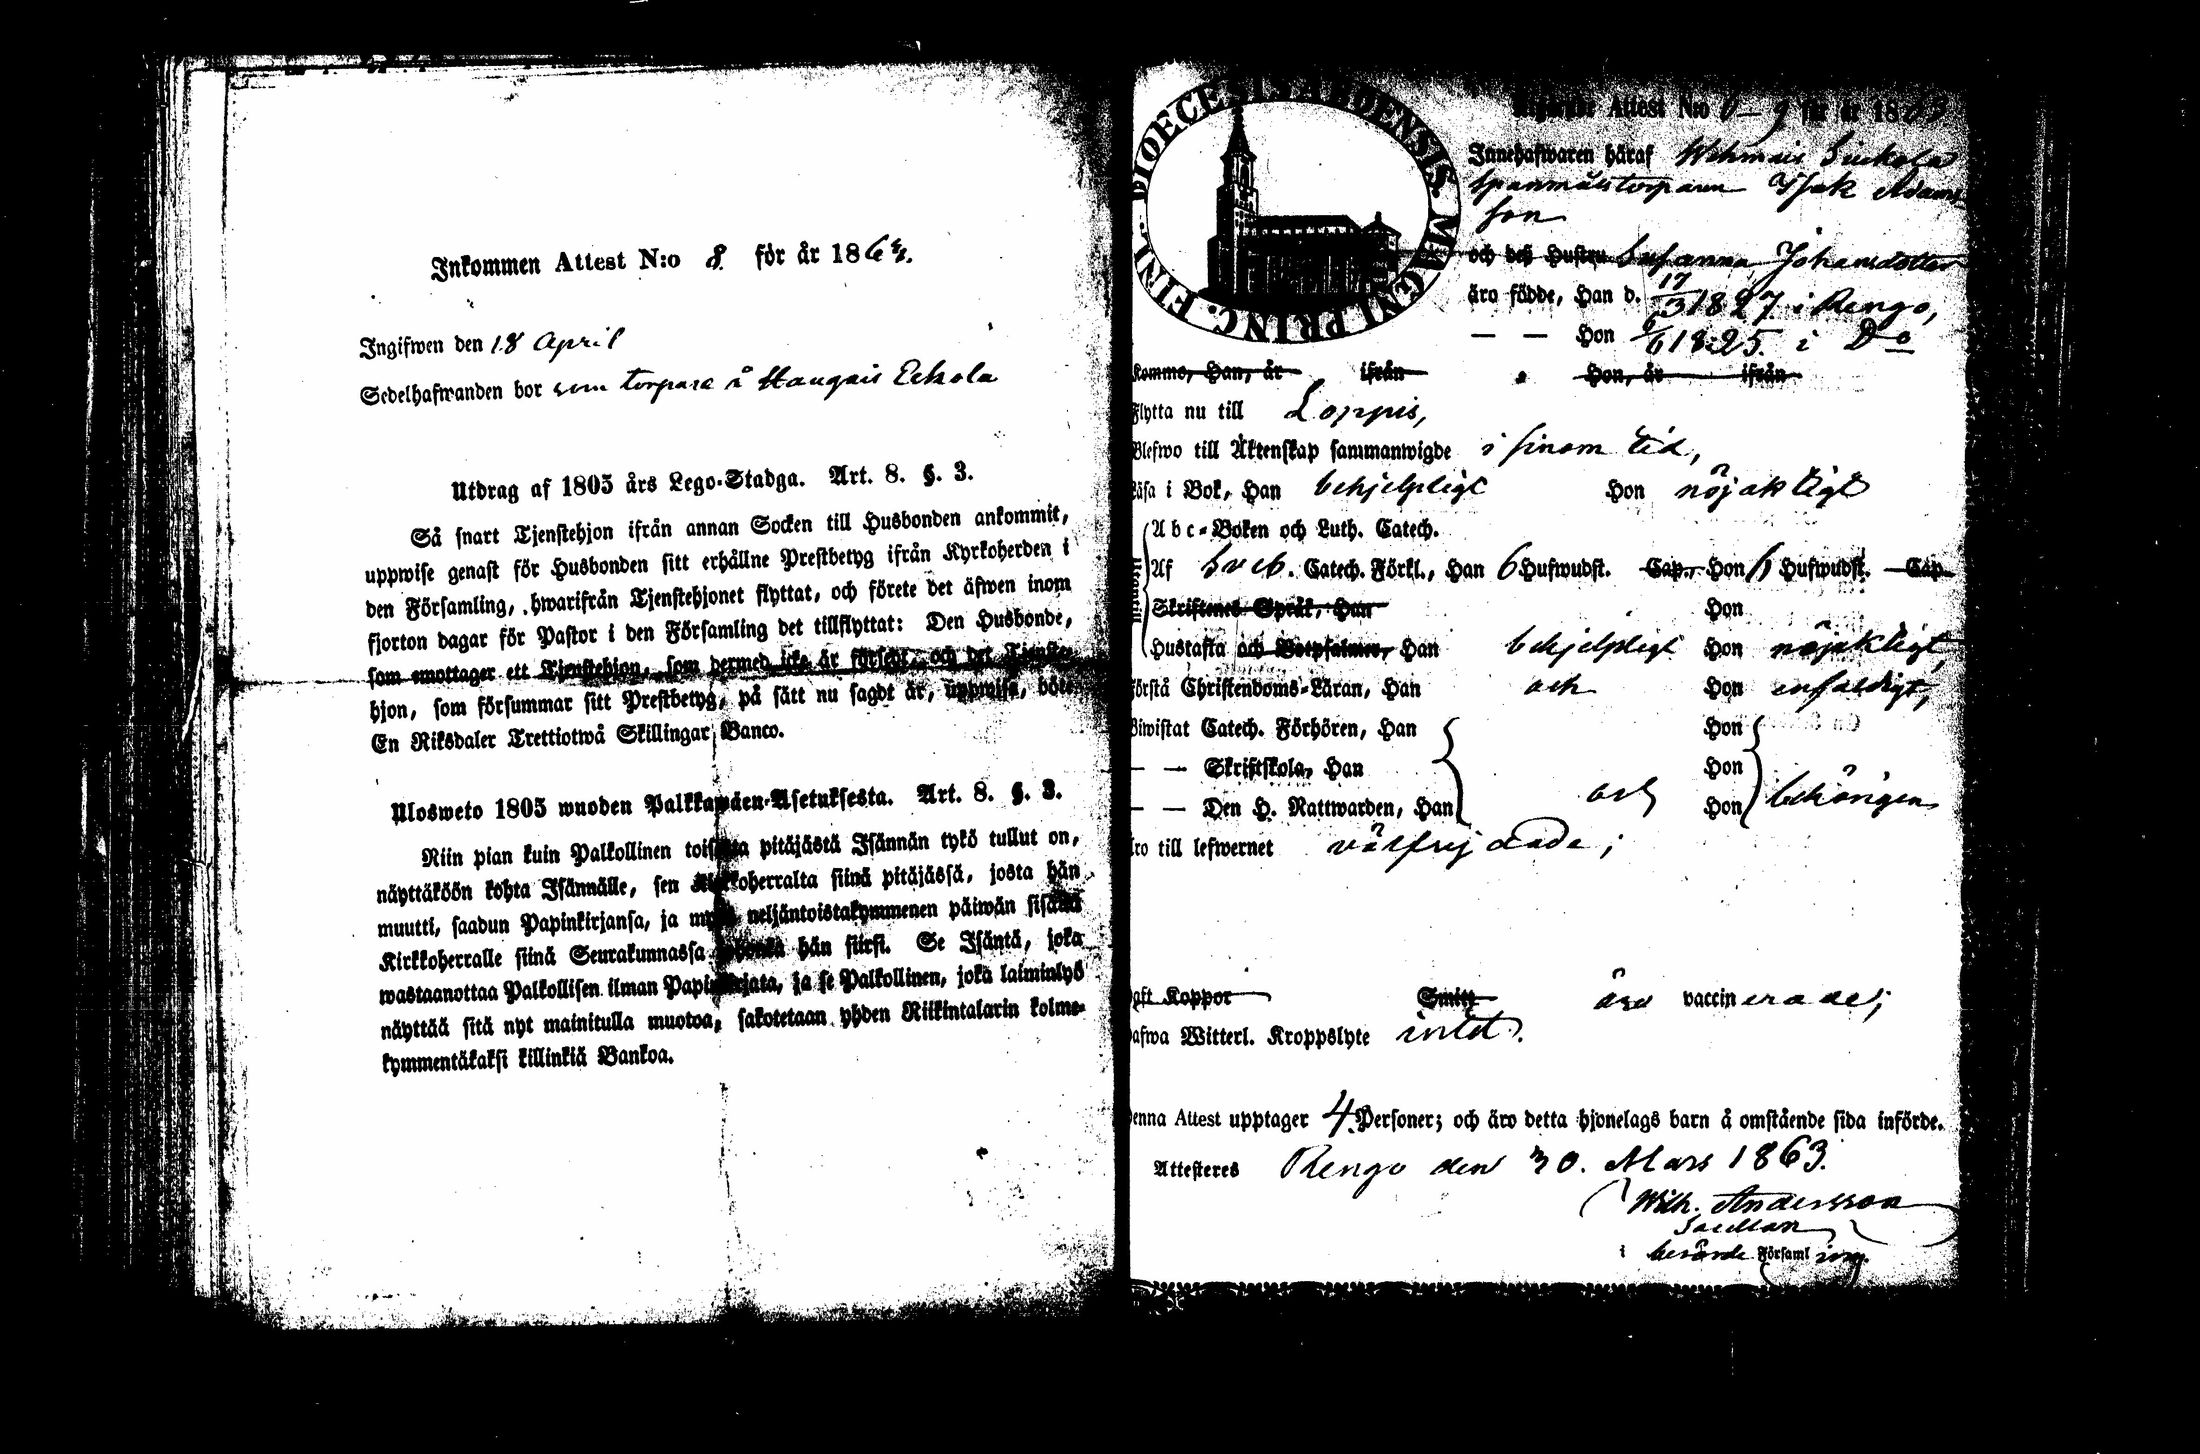 Inkommen Attest N:o 8. för år 1863.
Ingifwen den 18 April
Sedelhafwanden bor som torpare å Haugais Eckola
Utdrag af 1805 års Lego-Stadga. Art. 8. §. 3.
Så snart Tjenstehjon ifrån annan Socken till Husbonden ankommit,
uppwise genast för Husbonden sitt erhållne Prestbetyg ifrån Kyrkoherden i
den Församling, hwarifrån Tjenstehjonet flyttat, och förete det äfwen inom
fjorton dagar för Pastor i den Församling det tillflyttat: Den Husbonde,
som emottager ett Tjenstehjon, som dermed icke är försedt, och det Tjenste-
hjon, som försummar sitt Prestbetyg, på sätt nu sagdt är, uppwisa, böte
En Riksdaler Trettiotwå Skillingar Banco.
Ulosweto 1805 wuoden Palkkawäen-Asetuksesta. Art. 8. §. 3.
Niin pian kuin Palkollinen toisesta pitäjästä Isännän tykö tullut on,
näyttäköön kohta Isännälle, sen Kirkkoherralta siinä pitäjässä, josta hän
muutti, saadun Papinkirjansa, ja myös neljäntoistakymmenen päiwän sisällä
Kirkkoherralle siinä Seurakunnassa johonka hän siirsi. Se Isäntä, joka
wastaanottaa Palkollisen ilman Papinkirjata, ja se Palkollinen, joka laiminlyö
näyttää sitä nyt mainitulla muotoa, sakotetaan yhden Riikintalarin kolme-
kymmentäkaksi killinkiä Bankoa.
DIOECESIS ABOENSIS. MAGNI PRINC. FINL.
Attest N:o 6-9 för år 1863
Innehafwaren häraf Wehmais Siukola
spanmålstorparen Isak Adams-
son
och deß Hustru Susanna Johansdotter
äro födde, Han d. 17/3 1827 i Rengo,
— — Hon 6/6 1825. i Do
Kommo, Han, år ifrån Hon, år ifrån
Flytta nu till Loppis,
Blefwo till Äktenskap sammanwigde i sinom tid,
Läsa i Bok, Han behjelpligt Hon nöjaktigt
Utantill
A b c-Boken och Luth. Catech.
Af Sveb. Catech. Förkl., Han 6 Hufwudst. Cap., Hon 6 Hufwudst. Cap.
Skriftenes Språk, Han Hon
Hustafla och Botpsalmer, Han behjelpligt Hon nöjaktigt,
Förstå Christendoms-Läran, Han och Hon enfaldigt,
Biwistat Catech. Förhören, Han Hon
— — Skriftskola, Han Hon
— — Den H. Nattwarden, Han och Hon behörigen
Äro till lefwernet välfrejdade;
Haft Koppor Smitt äro vaccinerade;
Hafwa Witterl. Kroppslyte intet.
Denna Attest upptager 4. Personer; och äro detta hjonelags barn å omstående sida införde.
Attesteres Rengo den 30. Mars 1863.
Wilh. Andersson
Sacellan
i berörde Församling.